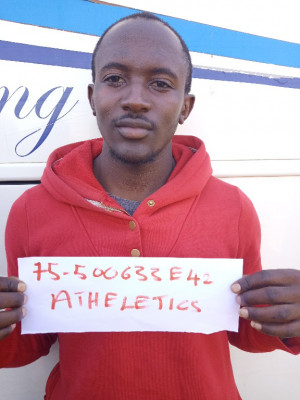 ng
75-500633E42
ATHELETICS